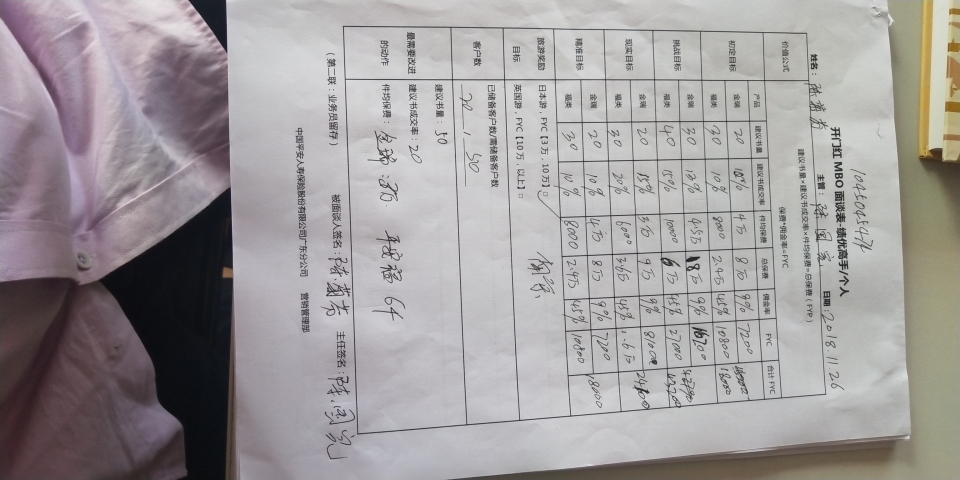 1045045476
开门红 MBO 面谈表-绩优高手/个人
姓名： 主管： 日期：2018.11.26
建议书量×建议书成交率×件均保费=总保费（FYP）
价值公式 保费*佣金率=FYC
产品 建议书量 建议书成交率 件均保费 总保费 佣金率 FYC 合计 FYC
初定目标 金瑞 20 10% 4万 8万 9% 7200 18000
福类 30 10% 8000 2.4万 45% 10800
挑战目标 金瑞 30 4.5万 18万 9% 16200 43200
福类 40 15% 10000 6万 45% 27000
现实目标 金瑞 20 15% 3万 9万 9% 8100
福类 30 20% 6000 3.6万 45% 1.6万
精准目标 金瑞 20 10% 4万 8万 9% 7200 18000
福类 30 10% 8000 2.4万 45% 10800
旅游奖励 日本游，FYC【3万，10万】□
目标 英国游，FYC【10万，以上】□
客户数 已储备客户数/需储备客户数
20 / 50
最需要改进的动作 建议书量：50
建议书成交率：20
件均保费：金瑞：3万 平安福 6千
（第二联：业务员留存） 被面谈人签名： 主任签名：
中国平安人寿保险股份有限公司广东分公司 营销管理部